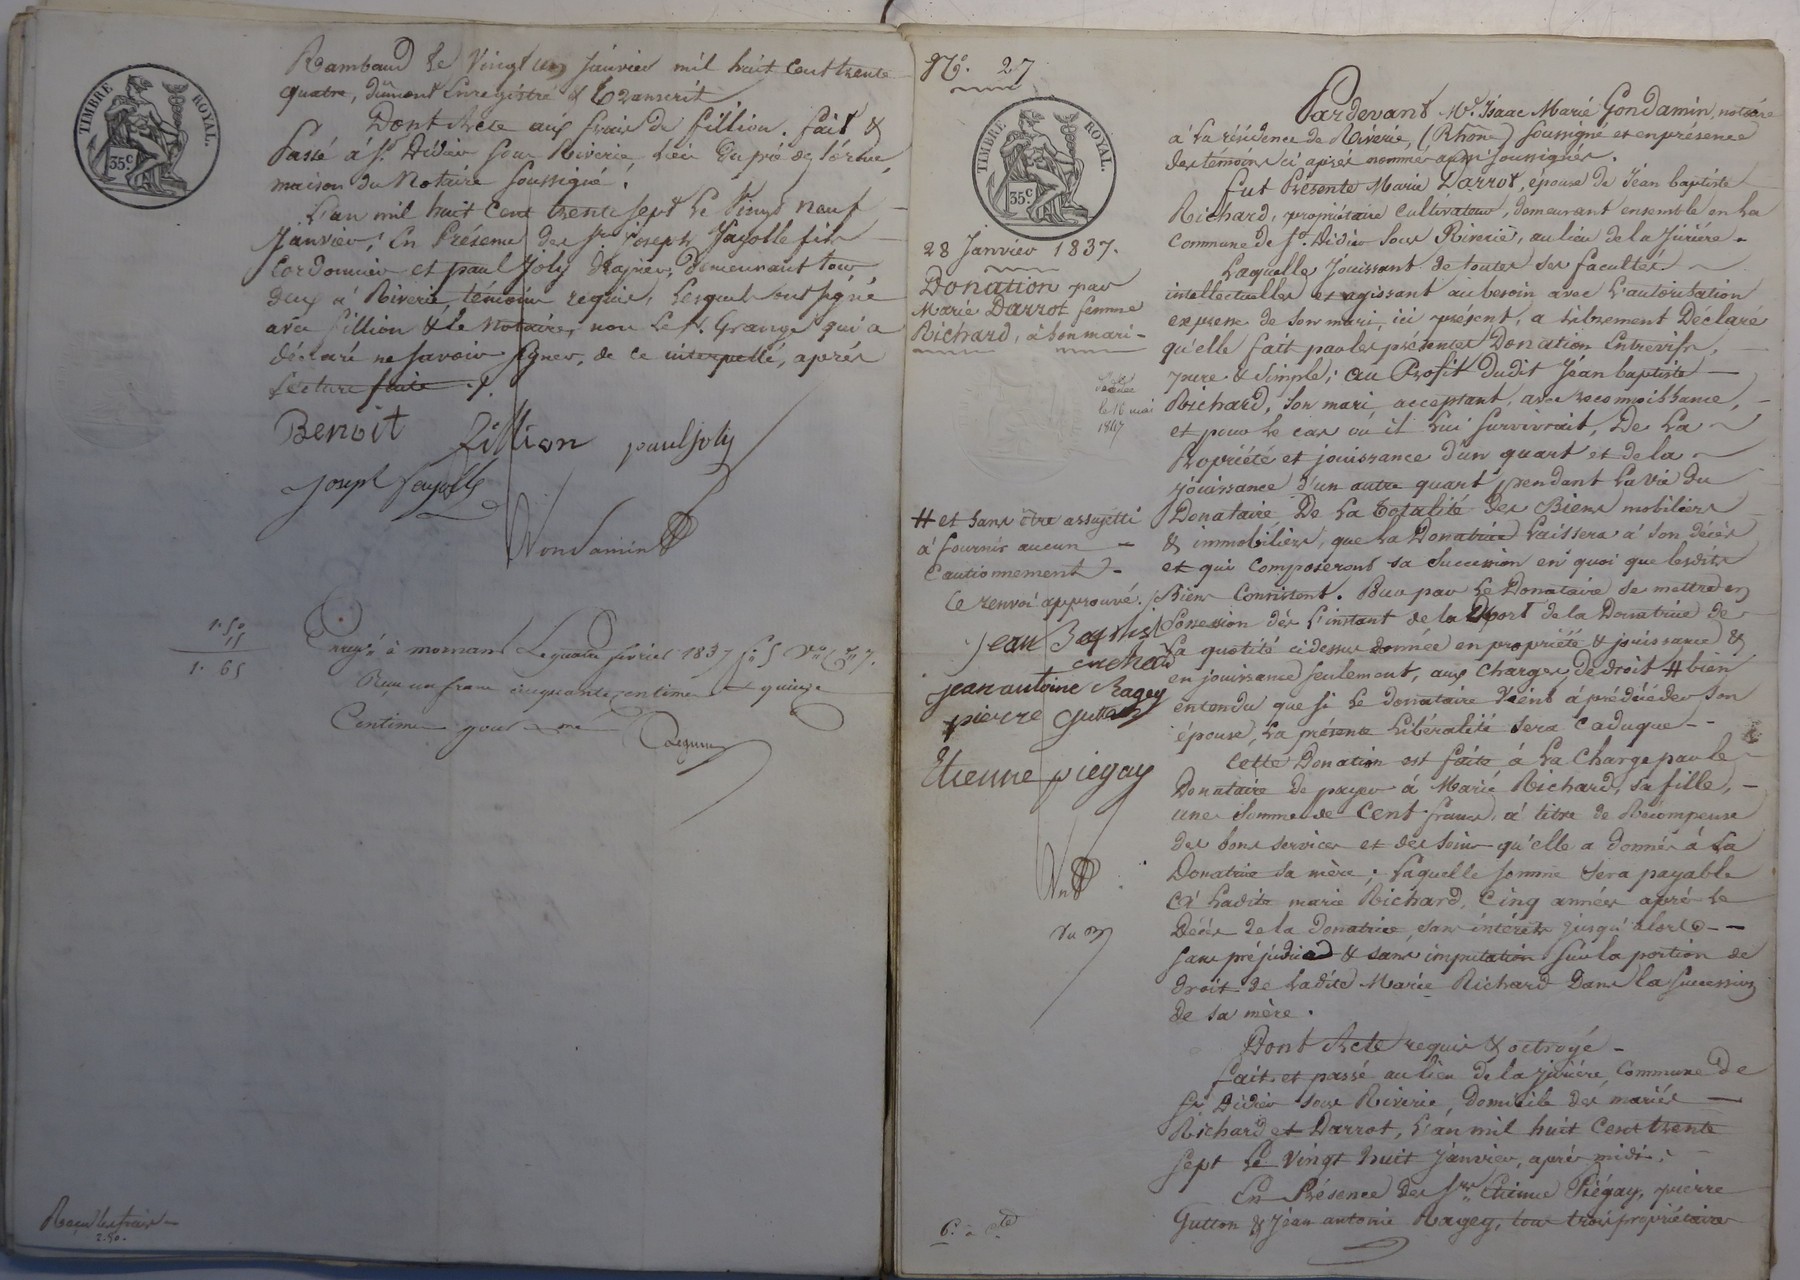 TIMBRE ROYAL.
35c.
Rambaud le vingt un janvier mil huit cent trente
quatre, dûment Enregistré & Transcrit
Dont Acte aux frais de fillion. fait &
Passé à St. Didier sous Riverie, lieu du pré de l'orme,
maison du Notaire soussigné.
L'an mil huit cent trente sept le vingt neuf
Janvier; En Présence des Srs. joseph fayolle fils
Cordonnier et paul Joly, demeurant tous
deux à Riverie, témoins requis, lesquels ont signé
avec fillion & le notaire, non le Sr. Grange qui a
déclaré ne savoir signer, de ce interpellé, après
lecture faite ./.
Benoit fillion paul joly
joseph fayolle
Gondamin
1. 50
15
1. 65
Enregré à mornant Le quatre février 1837
Reçu un franc cinquante centimes & quinze
Centimes pour
Reçu les frais
2.50.
No. 27
TIMBRE ROYAL.
35c.
28 Janvier 1837.
Donation par
Marie Darrot femme
Richard, à son mari
le 16 mai
1847
# et sans être assujetti
à fournir aucun
Cautionnement
Ce renvoi approuvé.
jean Baptiste
richard
jean antoine Ragey
pierre Gutton
Etienne piegay
Pardevant Me. Isaac Marie Gondamin, notaire
à la résidence de Riverie, (Rhône) soussigné et en présence
des témoins ci après nommés aussi soussignés.
Fut Présente Marie Darrot, épouse de Jean baptiste
Richard, propriétaire cultivateur, demeurant ensemble en la
Commune de St. Didier sous Riverie, au lieu de la Jivière.
Laquelle jouissant de toutes ses facultés
intellectuelles et agissant au besoin avec l'autorisation
expresse de son mari, ici présent, a librement Déclaré
qu'elle fait par les présentes Donation Entrevifs,
pure & simple; au Profit dudit Jean baptiste
Richard, son mari, acceptant, avec reconnoissance,
et pour le cas où il lui survivrait, De la
Propriété et jouissance d'un quart et de la
jouissance d'un autre quart pendant la vie du
Donataire De la totalité des Biens mobiliers
& immobiliers, que la Donatrice laissera à son décès
et qui composeront sa succession en quoi que lesdits
Biens Consistent. Pour par le Donataire se mettre en
Possession dès l'instant de la Mort de la Donatrice de
la quotité cidessus donnée en propriété & jouissance &
en jouissance seulement, aux charges de droit # bien
entendu que si le donataire vient à prédécéder son
épouse, la présente libéralité sera caduque
Cette Donation est faite à la Charge par le
Donataire de payer à Marie Richard, sa fille,
une somme de Cent francs, à titre de Récompense
des bons services et des soins qu'elle a donnés à la
Donatrice sa mère; laquelle somme sera payable
à ladite marie Richard, cinq années après le
Décès de la donatrice, sans intérêts jusqu'alors
sans préjudice & sans imputation sur la portion de
droit de ladite Marie Richard Dans la succession
de sa mère.
Dont Acte requis & octroyé
fait et passé au lieu de la jivière, Commune de
St. Didier sous Riverie, domicile des mariés
Richard et Darrot, l'an mil huit Cent trente
sept le vingt huit janvier, après midi;
En Présence des Srs. Etienne Piégay, pierre
Gutton & Jean antoine Ragey, tous trois propriétaires